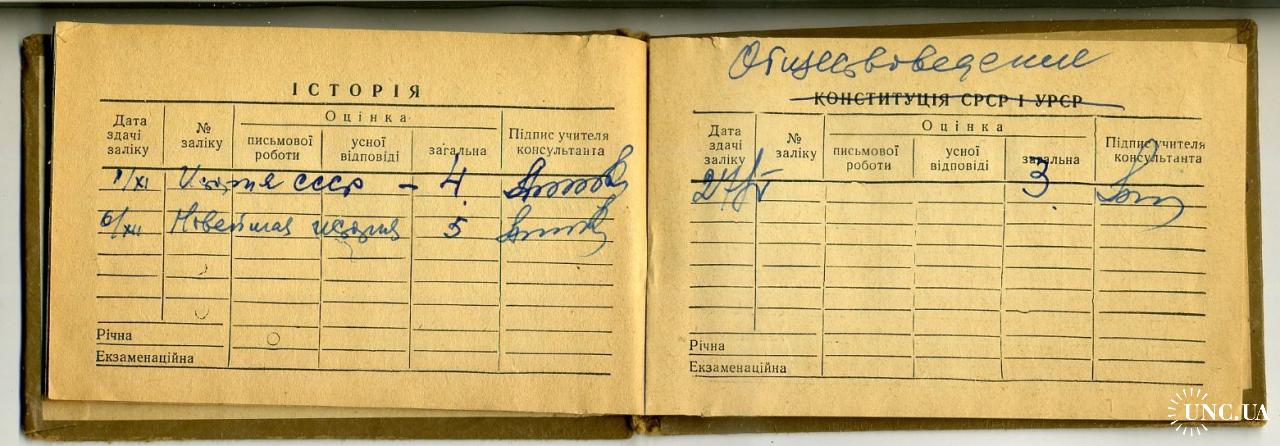 ІСТОРІЯ
Дата здачі заліку
№ заліку
Оцінка
письмової роботи
усної відповіді
загальна
Підпис учителя консультанта
1/XI История СССР - 4
6/XII Новейшая история 5
Річна
Екзаменаційна
Обществоведение
КОНСТИТУЦІЯ СРСР І УРСР
Дата здачі заліку
№ заліку
Оцінка
письмової роботи
усної відповіді
загальна
Підпис учителя консультанта
27/V 3
Річна
Екзаменаційна
UNC.UA